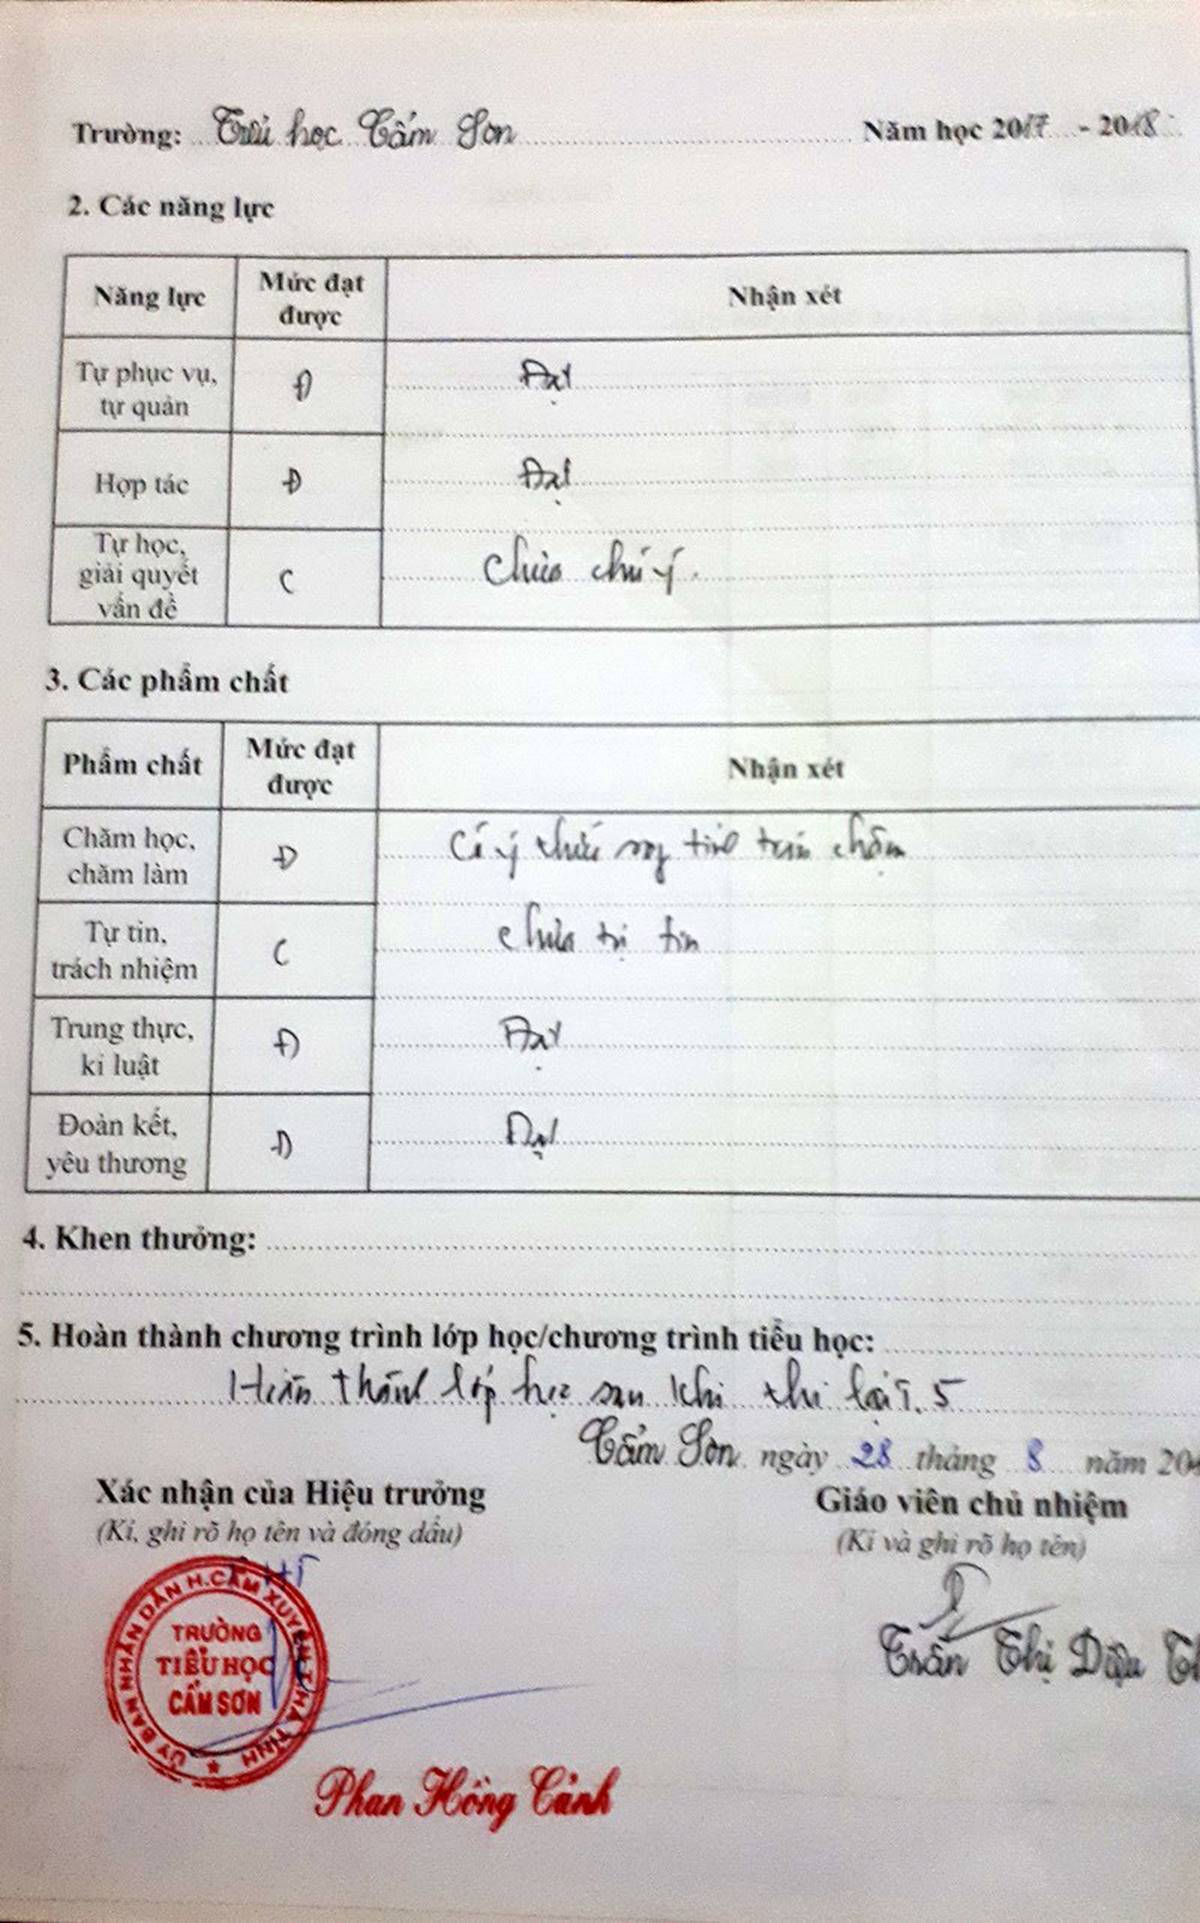 Trường: Tiểu học Cẩm Sơn Năm học 2017 - 2018
2. Các năng lực
Năng lực Mức đạt được Nhận xét
Tự phục vụ, tự quản Đ Đạt
Hợp tác Đ Đạt
Tự học, giải quyết vấn đề C Chưa chú ý.
3. Các phẩm chất
Phẩm chất Mức đạt được Nhận xét
Chăm học, chăm làm Đ Có ý thức chậm
Tự tin, trách nhiệm C Chưa tự tin
Trung thực, kỉ luật Đ Đạt
Đoàn kết, yêu thương Đ Đạt
4. Khen thưởng:
5. Hoàn thành chương trình lớp học/chương trình tiểu học:
Hoàn thành lớp học sau khi thi lại
Cẩm Sơn ngày 28 tháng 8 năm 20
Xác nhận của Hiệu trưởng
(Kí, ghi rõ họ tên và đóng dấu)
Giáo viên chủ nhiệm
(Kí và ghi rõ họ tên)
ỦY BAN NHÂN DÂN H.CẨM XUYÊN T.HÀ TĨNH
TRƯỜNG
TIỂU HỌC
CẨM SƠN
Trần Thị Diệu
Phan Hồng Cảnh